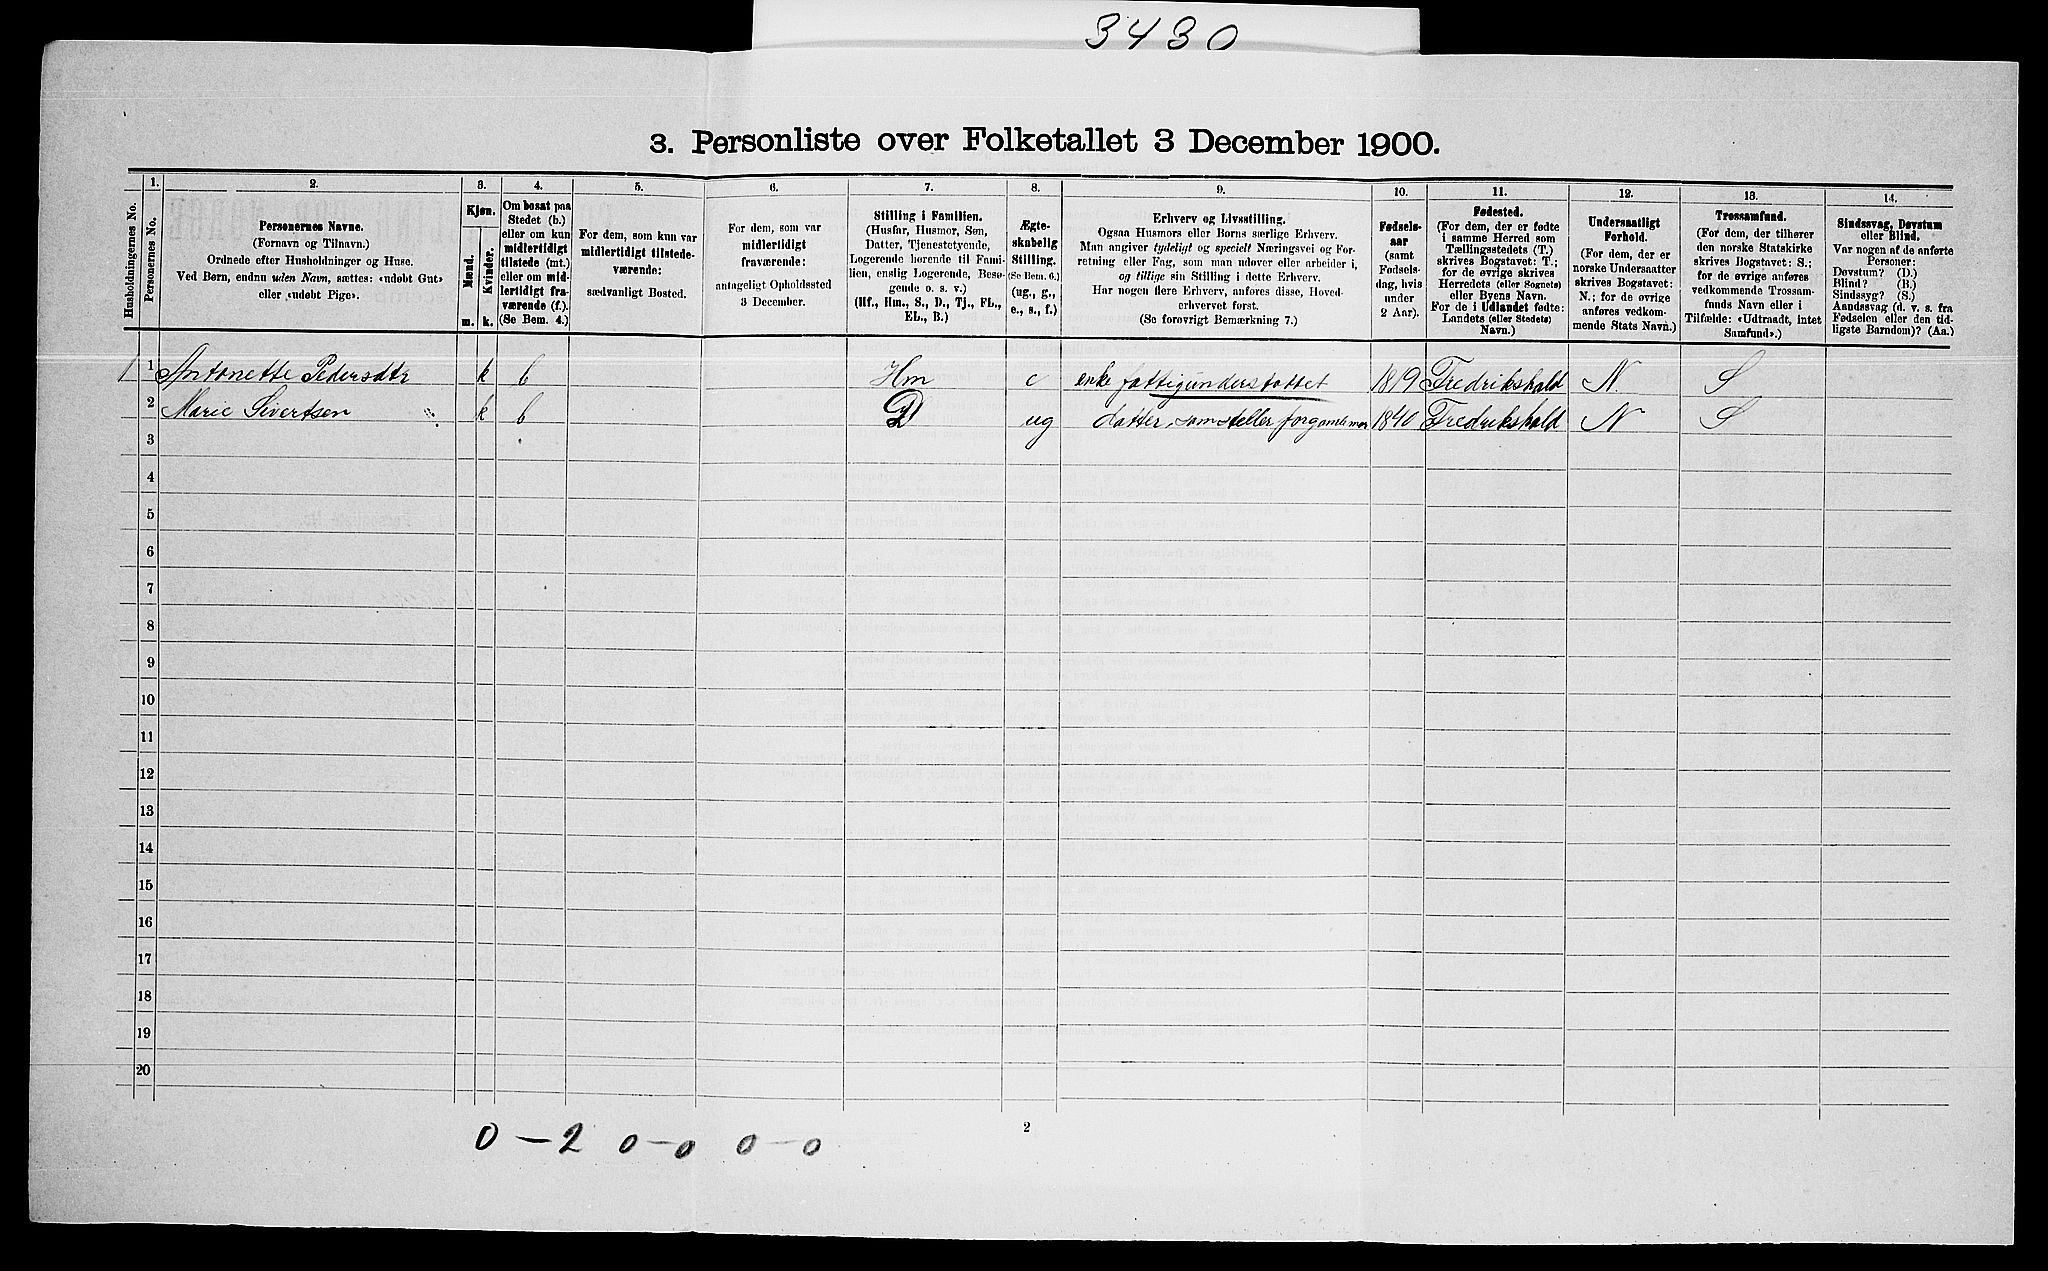 3430
3. Personliste over Folketallet 3 December 1900.
Husholdningernes No.
1.
Personernes No.
2.
Personernes Navne.
(Fornavn og Tilnavn.)
Ordnede efter Husholdninger og Huse.
Ved Børn, endnu uden Navn, sættes: «udøbt Gut»
eller «udøbt Pige».
3.
Kjøn.
Mænd.
Kvinder.
m.
k.
4.
Om bosat paa
Stedet (b.)
eller om kun
midlertidigt
tilstede (mt.)
eller om mid-
lertidigt fra-
værende (f.).
(Se Bem. 4.)
5.
For dem, som kun var
midlertidigt tilstede-
værende:
sædvanligt Bosted.
6.
For dem, som var
midlertidigt
fraværende:
antageligt Opholdssted
3 December.
7.
Stilling i Familien.
(Husfar, Husmor, Søn,
Datter, Tjenestetyende,
Logerende hørende til Fami-
lien, enslig Logerende, Besø-
gende o. s. v.)
(Hf., Hm., S., D., Tj., FL.,
EL., B.)
8.
Ægte-
skabelig
Stilling.
(Se Bem. 6.)
(ug., g.,
e., s., f.)
9.
Erhverv og Livsstilling.
Ogsaa Husmors eller Børns særlige Erhverv.
Man angiver tydeligt og specielt Næringsvei og For-
retning eller Fag, som man udøver eller arbeider i,
og tillige sin Stilling i dette Erhverv.
Har nogen flere Erhverv, anføres disse, Hoved-
erhvervet først.
(Se forøvrigt Bemærkning 7.)
10.
Fødsels-
aar
(samt
Fødsels-
dag, hvis
under
2 Aar).
11.
Fødested.
(For dem, der er fødte
i samme Herred som
Tællingsstedets (T.)
skrives Bogstavet: T.;
for de øvrige skrives
Herredets (eller Sognets)
eller Byens Navn.
For de i Udlandet fødte:
Landets (eller Stedets)
Navn.)
12.
Undersaatligt
Forhold.
(For dem, der er
norske Undersaatter
skrives Bogstavet:
N.; for de øvrige
anføres vedkom-
mende Stats Navn.)
13.
Trossamfund.
(For dem, der tilhører
den norske Statskirke
skrives Bogstavet: S.;
for de øvrige anføres
vedkommende Trossam-
funds Navn eller i
Tilfælde: «Udtraadt, intet
Samfund».)
14.
Sindssvag, Døvstum
eller Blind.
Var nogen af de anførte
Personer:
Døvstum? (D.)
Blind? (B.)
Sindssyg? (S.)
Aandssvag (d. v. s. fra
Fødselen eller den tid-
ligste Barndom)? (Aa.)
1 1 Antonette Pedersdtr k b Hm e enke fattigunderstøttet 1819 Fredrikshald N S
2 Marie Sivertsen k b D ug datter, som steller for gamle mor 1840 Fredrikshald N S
3
4
5
6
7
8
9
10
11
12
13
14
15
16
17
18
19
20
0 - 2 0 - 0 0 - 0
2